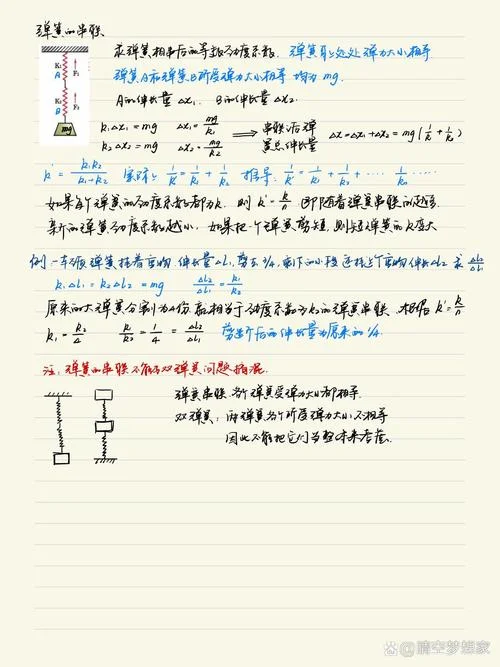 弹簧的串联
求弹簧相串后的等效劲度系数. 弹簧自身处处弹力大小相等
弹簧A和弹簧B所受弹力大小相等 均为mg.
A的伸长量 Δx₁. B的伸长量 Δx₂.
K₁ F₁
A
K₂ F₂
B
mg
k₁Δx₁ = mg Δx₁ = mg/k₁ ⟹ 串联后弹簧总伸长量 Δx = Δx₁ + Δx₂ = mg(1/k₁ + 1/k₂)
k₂Δx₂ = mg Δx₂ = mg/k₂
k' = k₁k₂/(k₁+k₂) 1/k' = 1/k₁ + 1/k₂ 推导: 1/k' = 1/k₁ + 1/k₂ + ····
如果每个弹簧的劲度系数都为k. 则 k' = k/n 即随着弹簧串联的越多.
新的弹簧劲度系数越小. 如果把一个弹簧剪短, 则短弹簧的k变大
例. 一轻质弹簧挂着重物 伸长量ΔL₁, 剪去3/4, 剩下的小段还挂这个重物伸长ΔL₂ 求 ΔL₂/ΔL₁
k₁ΔL₁ = k₂ΔL₂ = mg ΔL₂/ΔL₁ = k₁/k₂
原来的大弹簧分割为4份 就相当于劲度系数为k₂的弹簧串联 根据 k' = k/n
k₁ = k₂/4 k₁/k₂ = 1/4 = ΔL₂/ΔL₁ 剪完后的伸长量为原来的1/4.
注: 弹簧的串联不能与双弹簧问题搞混.
弹簧串联各个弹簧受弹力大小都相等.
双弹簧: 两弹簧各个所受弹力大小不相等
因此不能把它们当整体来看.
@晴空梦想家